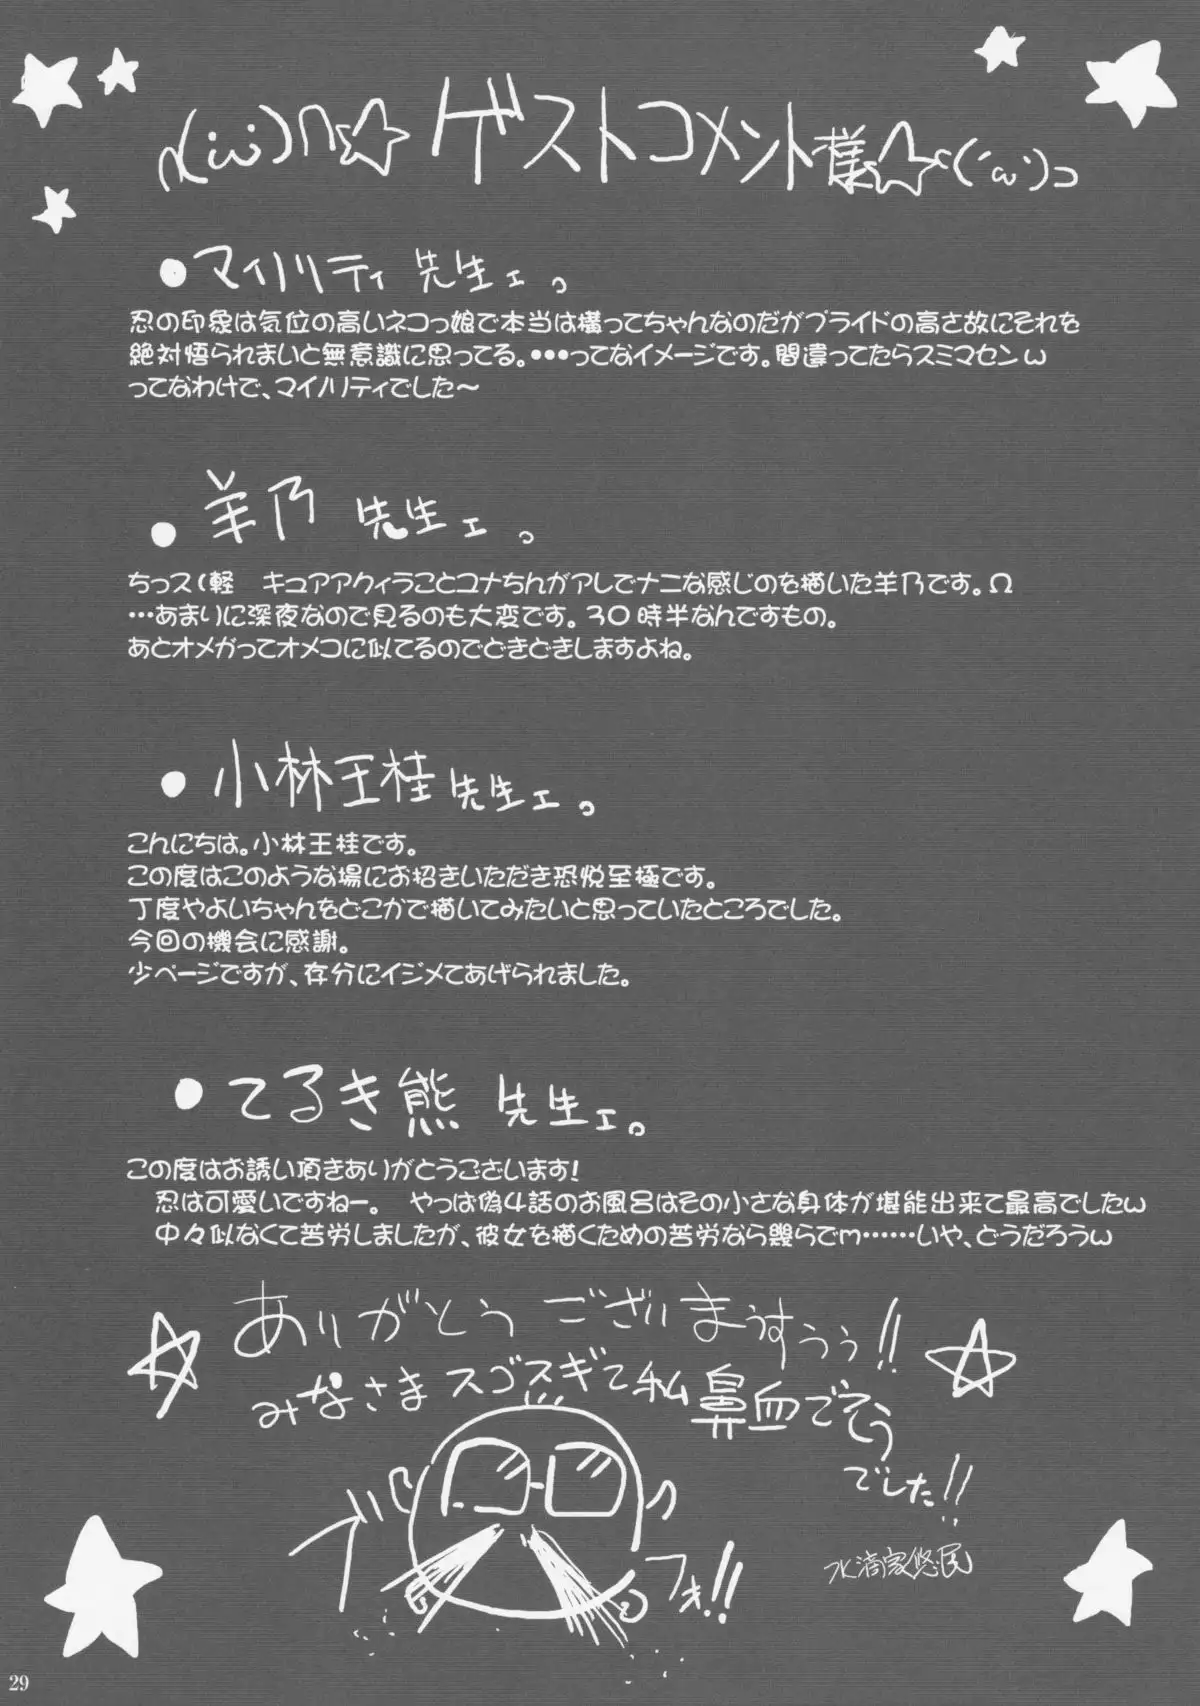 ∩(・ω・)∩☆ ゲストコメント様☆⊂(´ω`)⊃
●マイノリティ 先生ェ。
忍の印象は気位の高いネコっ娘で本当は構ってちゃんなのだがプライドの高さ故にそれを
絶対悟られまいと無意識に思ってる。・・・ってなイメージです。間違ってたらスミマセンω
ってなわけで、マイノリティでした～
●羊乃 先生ェ。
ちっス(軽　キュアアクィラことユナちんがアレでナニな感じのを描いた羊乃です。Ω
…あまりに深夜なので見るのも大変です。30時半なんですもの。
あとオメガってオメコに似てるのでどきどきしますよね。
●小林王桂 先生ェ。
こんにちは。小林王桂です。
この度はこのような場にお招きいただき恐悦至極です。
丁度やよいちゃんをどこかで描いてみたいと思っていたところでした。
今回の機会に感謝。
少ページですが、存分にイジメてあげられました。
●てるき熊 先生ェ。
この度はお誘い頂きありがとうございます！
忍は可愛いですねー。　やっぱ偽4話のお風呂はその小さな身体が堪能出来て最高でしたω
中々似なくて苦労しましたが、彼女を描くための苦労なら幾らでm……いや、どうだろうω
ありがとうございまぅすぅぅ!!
みなさまスゴスギて私鼻血でそう
でした!!
ブ
フォ!!
29